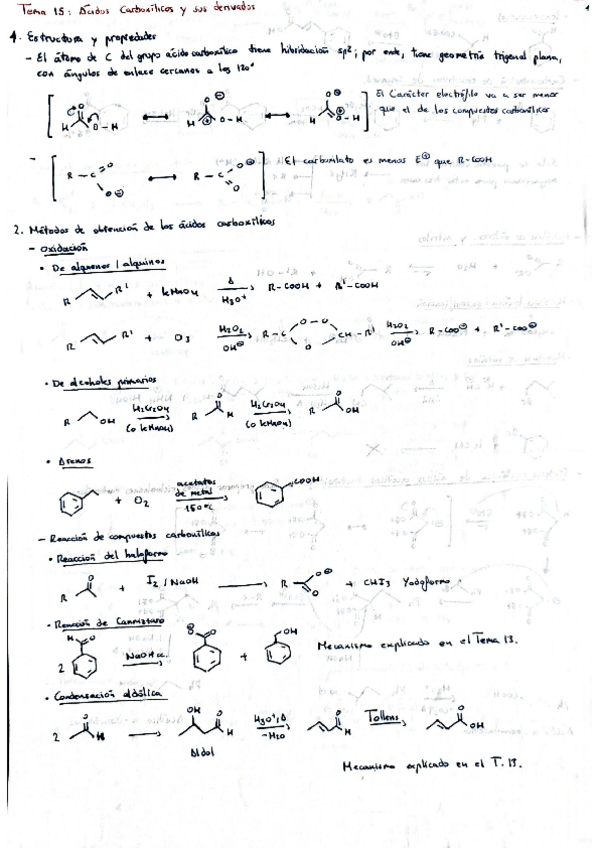 Tema 15: Ácidos Carboxílicos y sus derivados
1. Estructura y propiedades
- El átomo de C del grupo ácido carboxílico tiene hibridación sp²; por ende, tiene geometría trigonal plana,
con ángulos de enlace cercanos a los 120°
El Carácter electrófilo va a ser menor
que el de los compuestos carbonílicos
El carboxilato es menos E⊕ que R-COOH
2. Métodos de obtención de los ácidos carboxílicos
- Oxidación
• De alquenos / alquinos
R R' + KMnO4 Δ H3O+ R-COOH + R'-COOH
R R' + O3 H2O2 OH⊖ R-C O-O O CH-R' H2O2 OH⊖ R-COO⊖ + R'-COO⊖
• De alcoholes primarios
R OH H2CrO4 (o KMnO4) R O H H2CrO4 (o KMnO4) R O OH
• Arenos
+ O2 acetatos de metal 150°C COOH
- Reacción de compuestos carboxílicos
• Reacción del haloformo
R O + I2 / NaOH R O⊖ O + CHI3 Yodoformo
• Reacción de Cannizzaro
2 NaOH cc. + OH Mecanismo explicado en el Tema 13.
• Condensación aldólica
2 O H OH O H H3O+, Δ -H2O O H Tollens O OH
Aldol
Mecanismo explicado en el T. 13.